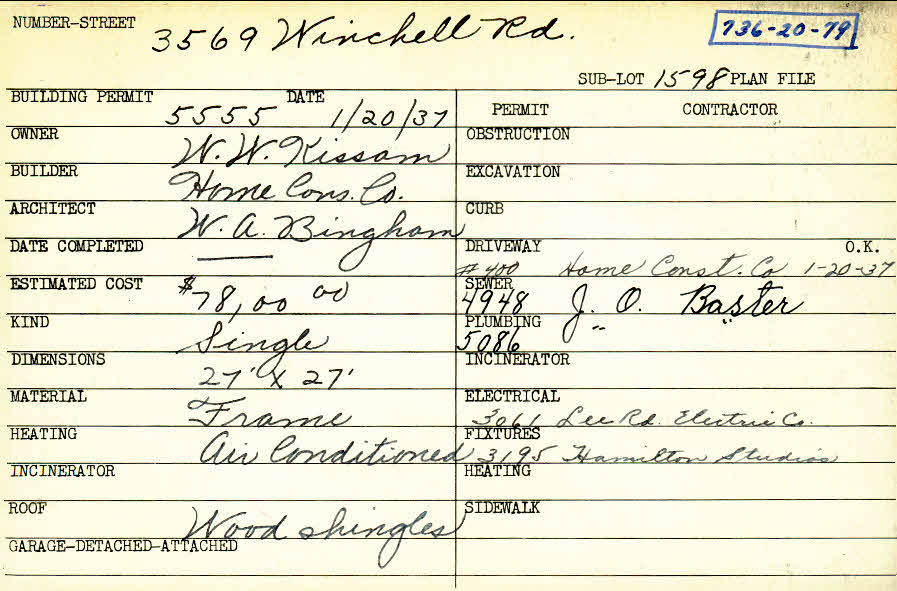 NUMBER-STREET 3569 Winchell Rd. 736-20-79
SUB-LOT 1598 PLAN FILE
BUILDING PERMIT 5555 DATE 1/20/37 PERMIT CONTRACTOR
OWNER W. W. Kissam OBSTRUCTION
BUILDER Home Cons. Co. EXCAVATION
ARCHITECT W. A. Bingham CURB
DATE COMPLETED — DRIVEWAY O.K.
#400 Home Const. Co 1-20-37
ESTIMATED COST $78,00 00 SEWER 4948 J. O. Baster
KIND Single PLUMBING 5086 " "
DIMENSIONS 27' X 27' INCINERATOR
MATERIAL Frame ELECTRICAL 3061 Lee Rd. Electric Co.
HEATING Air Conditioned FIXTURES 3195 Hamilton Studios
INCINERATOR HEATING
ROOF Wood shingles SIDEWALK
GARAGE-DETACHED-ATTACHED